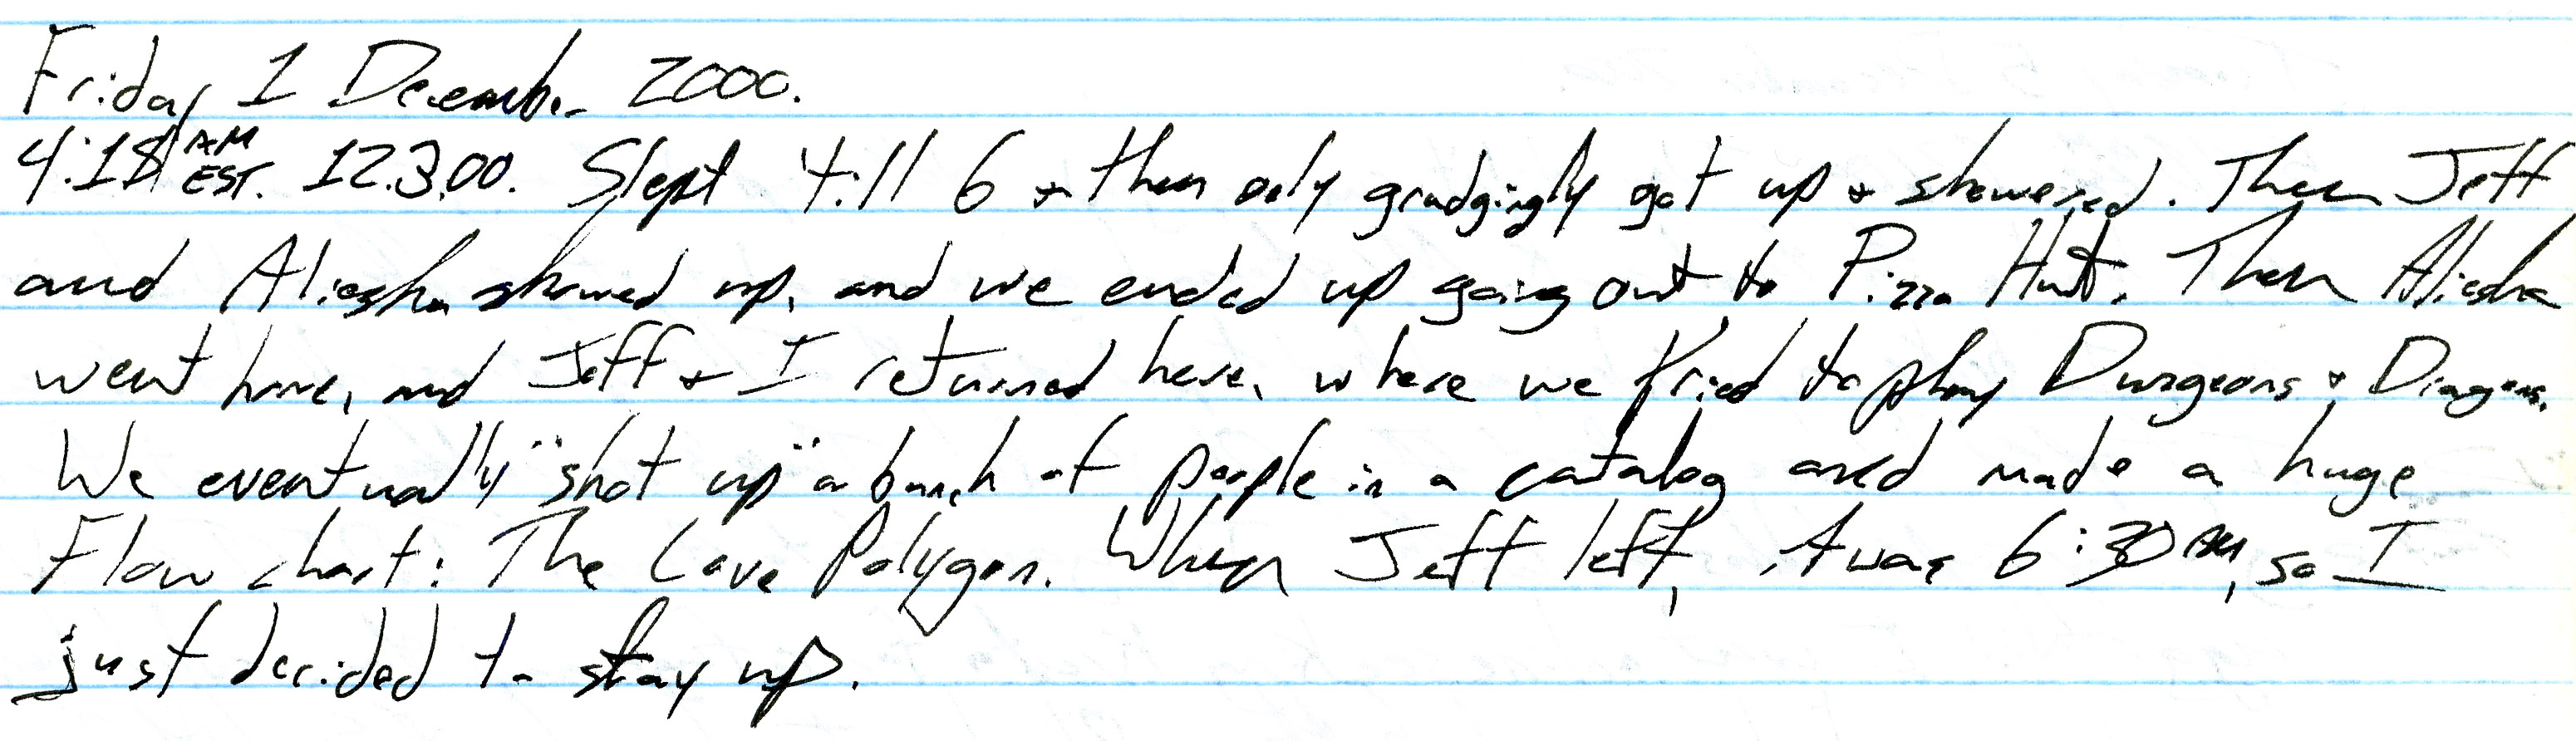 Friday 1 December 2000.
4:18 AM EST. 12.3.00. Slept till 6 + then only grudgingly got up + showered. Then Jeff
and Aliesha showed up, and we ended up going out to Pizza Hut. Then Aliesha
went home, and Jeff + I returned here, where we tried to play Dungeons + Dragons.
We eventually "shot up" a bunch of people in a catalog and made a huge
Flow chart: The Love Polygon. When Jeff left, it was 6:30 AM, so I
just decided to stay up.